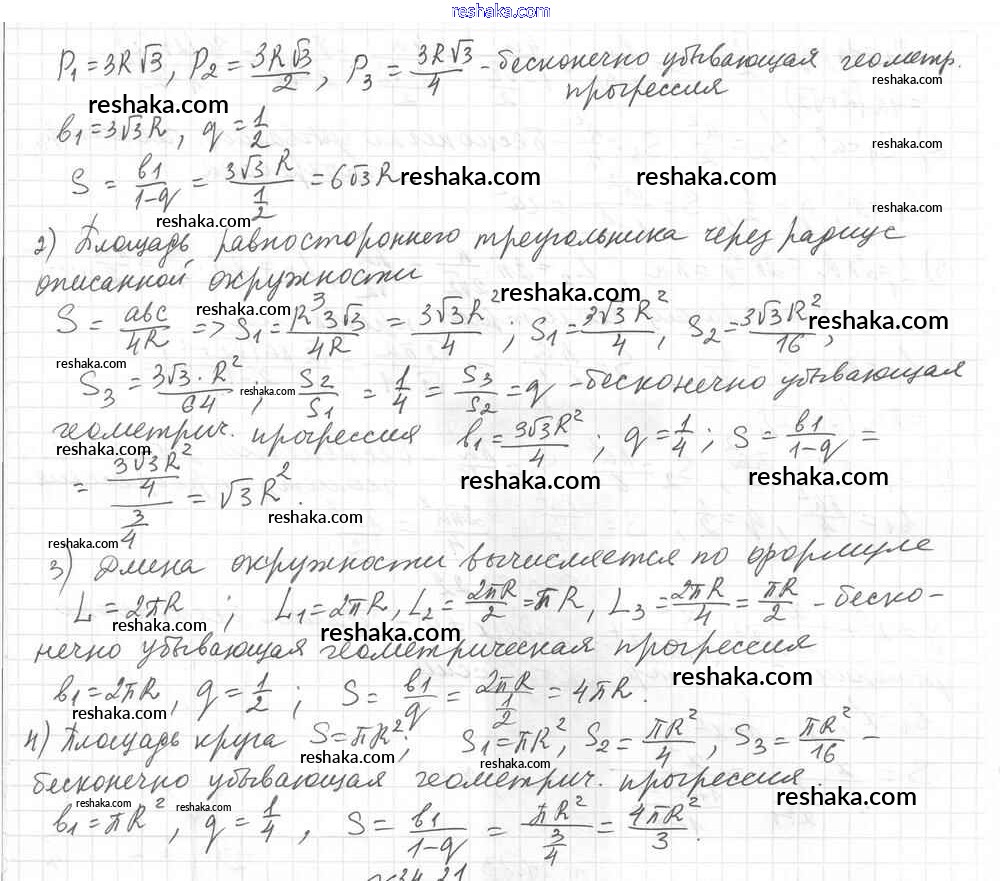 reshaka.com
P₁ = 3R√3, P₂ = 3R√3/2, P₃ = 3R√3/4 - бесконечно убывающая геометр.
reshaka.com
прогрессия
reshaka.com
b₁ = 3√3R, q = 1/2
reshaka.com
S = b1/(1-q) = 3√3R/(1/2) = 6√3R
reshaka.com
reshaka.com
reshaka.com
reshaka.com
2) Площадь равностороннего треугольника через радиус
описанной окружности
reshaka.com
reshaka.com
S = abc/4R => S₁ = R³3√3/4R = 3√3R²/4; S₁ = 3√3R²/4, S₂ = 3√3R²/16,
reshaka.com
reshaka.com
reshaka.com
S₃ = 3√3·R²/64; S2/S1 = 1/4 = S3/S2 = q - бесконечно убывающая
геометрич. прогрессия b₁ = 3√3R²/4; q = 1/4; S = b1/(1-q) =
reshaka.com
reshaka.com
reshaka.com
= (3√3R²/4)/(3/4) = √3R².
reshaka.com
reshaka.com
3) Длина окружности вычисляется по формуле
L = 2πR; L₁ = 2πR, L₂ = 2πR/2 = πR, L₃ = 2πR/4 = πR/2 - беско-
reshaka.com
reshaka.com
нечно убывающая геометрическая прогрессия
reshaka.com
b₁ = 2πR, q = 1/2; S = b1/q = 2πR/(1/2) = 4πR.
reshaka.com
4) Площадь круга S = πR²; S₁ = πR², S₂ = πR²/4, S₃ = πR²/16 -
reshaka.com
reshaka.com
бесконечно убывающая геометрич. прогрессия.
reshaka.com
reshaka.com
reshaka.com
b₁ = πR², q = 1/4, S = b1/(1-q) = πR²/(3/4) = 4πR²/3.